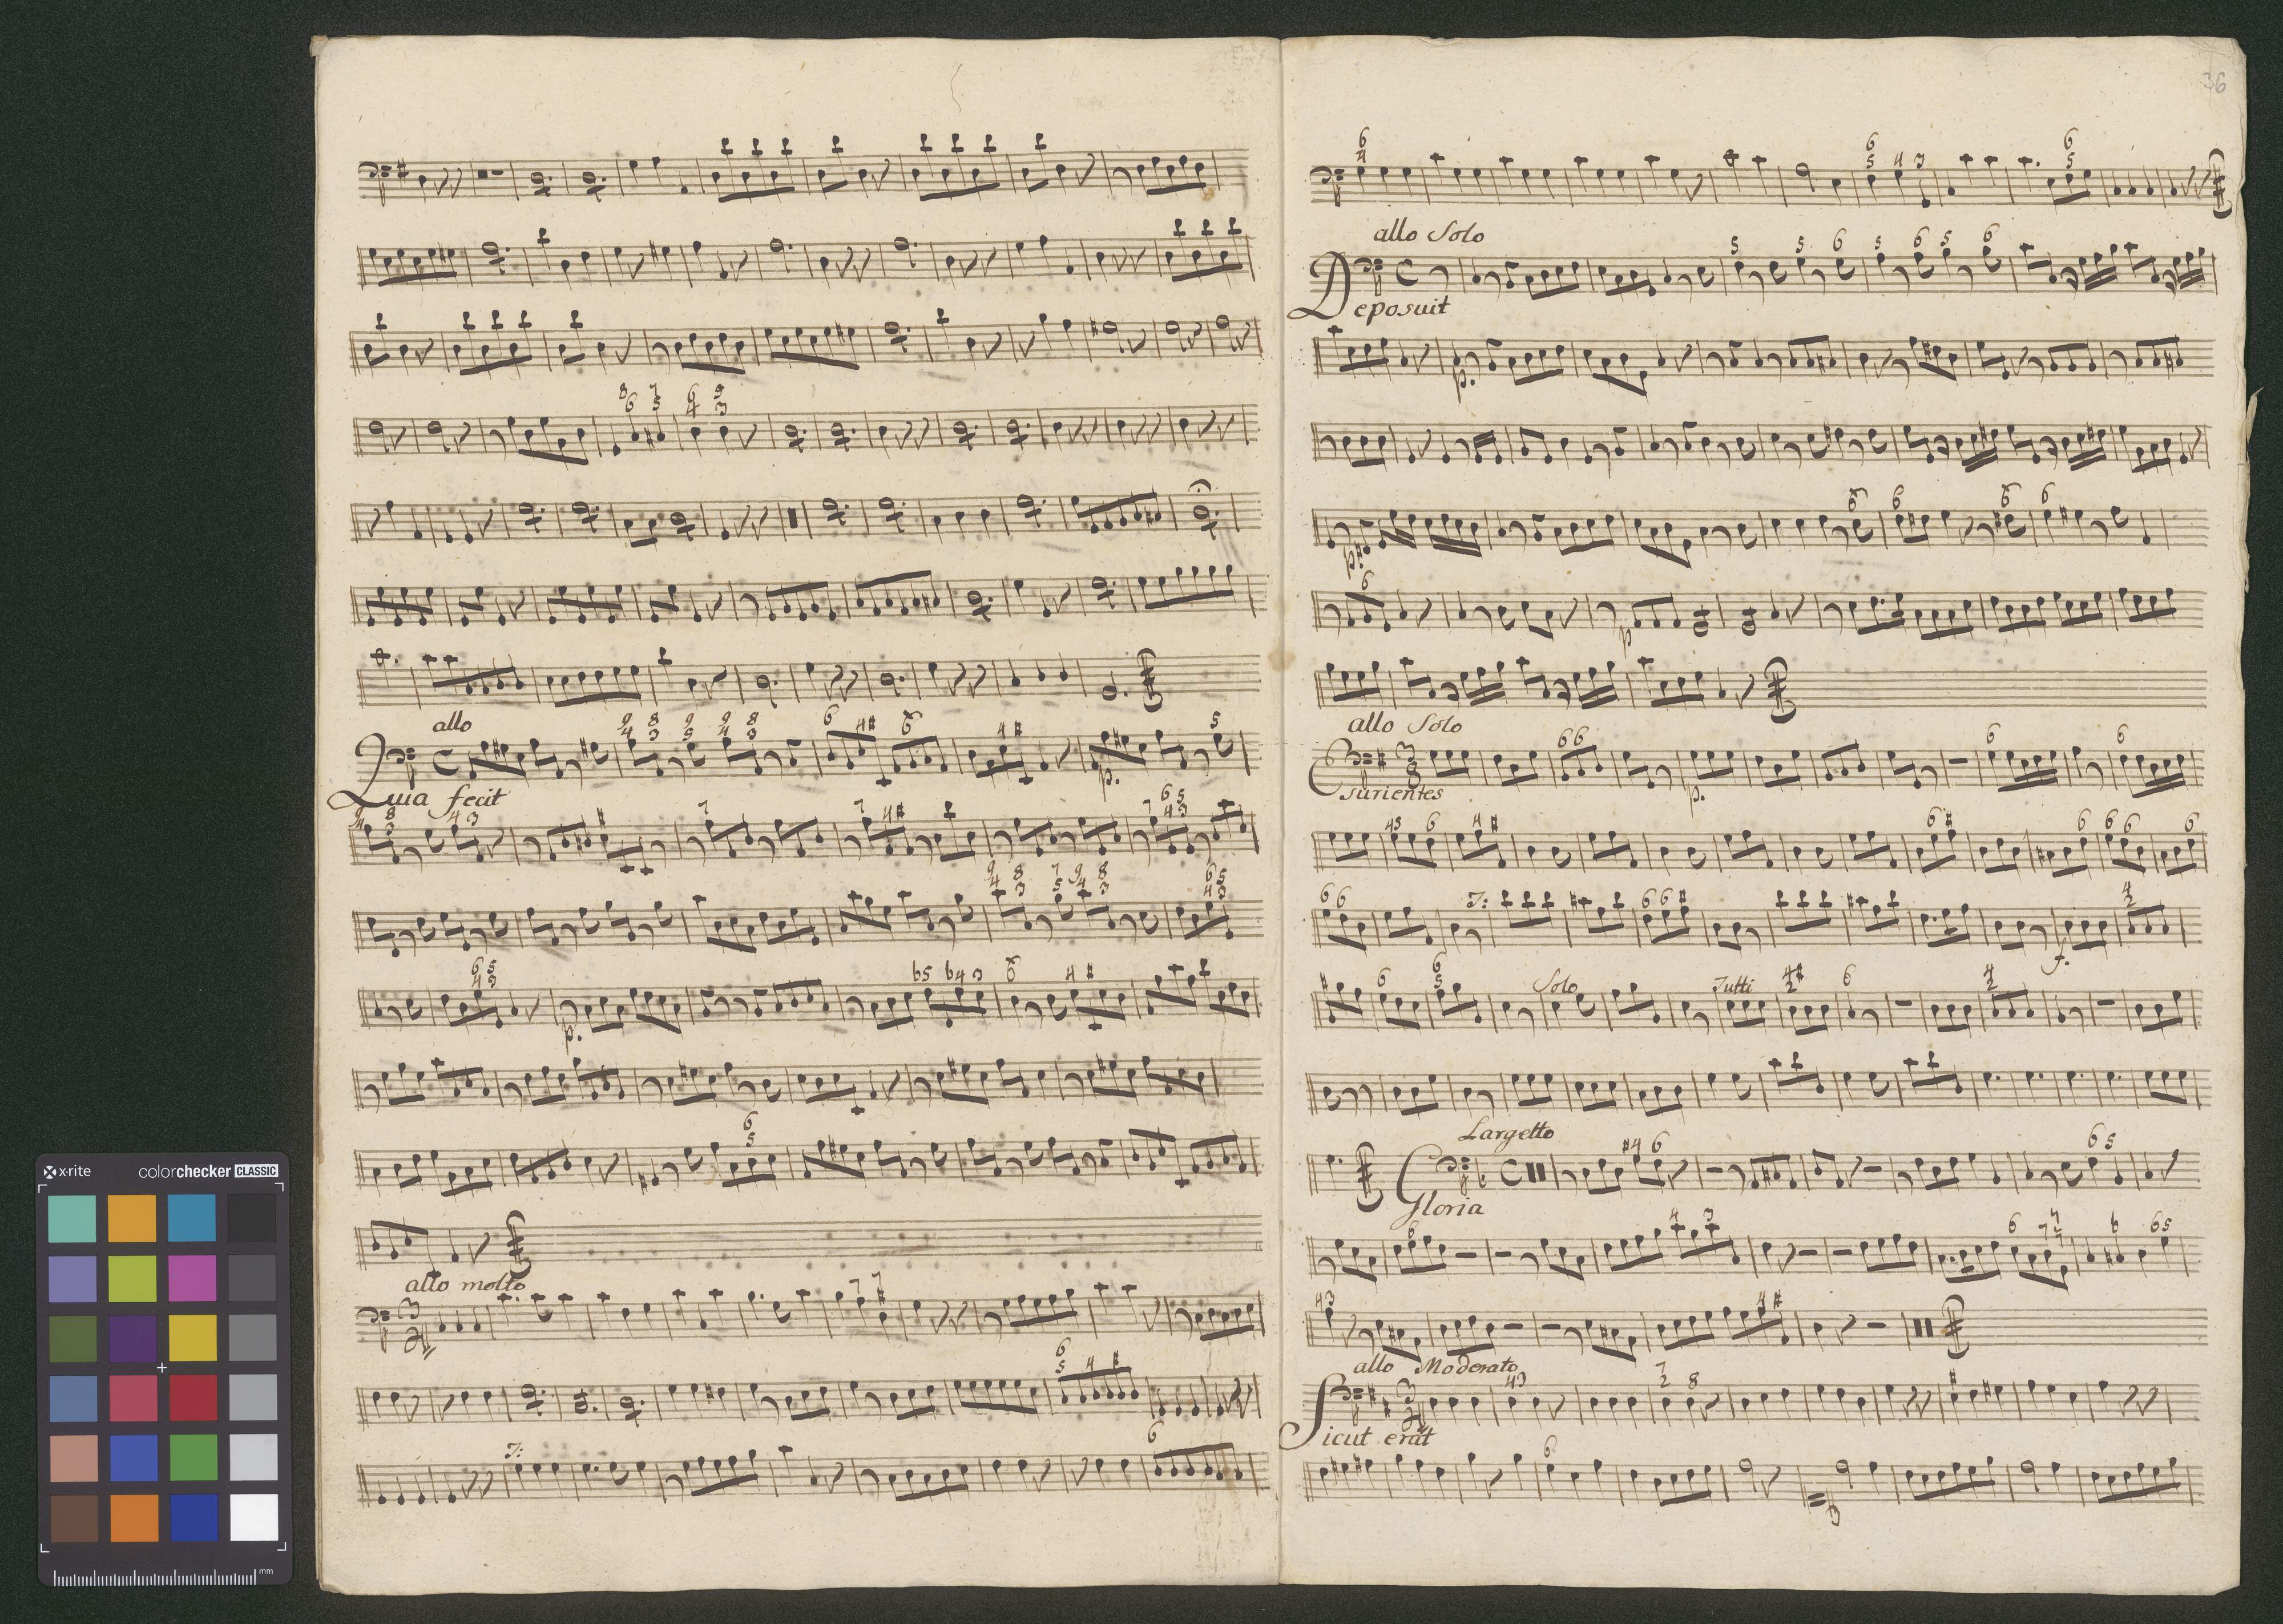 allo
Quia fecit
p.
p.
allo molto
36
allo Solo
Deposuit
p.
p.
p
allo Solo
Esurientes
p.
f.
Solo
Tutti
Largetto
Gloria
allo Moderato
Sicut erat
x-rite
colorchecker CLASSIC
mm